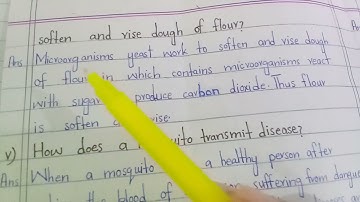 soften and rise dough of flour?
Ans Microorganisms yeast work to soften and rise dough
of flour in which contains microorganisms react
with sugar produce carbon dioxide. Thus flour
is soften rise.
v) How does a mosquito transmit disease?
Ans When a mosquito a healthy person after
the blood of suffering from dangue